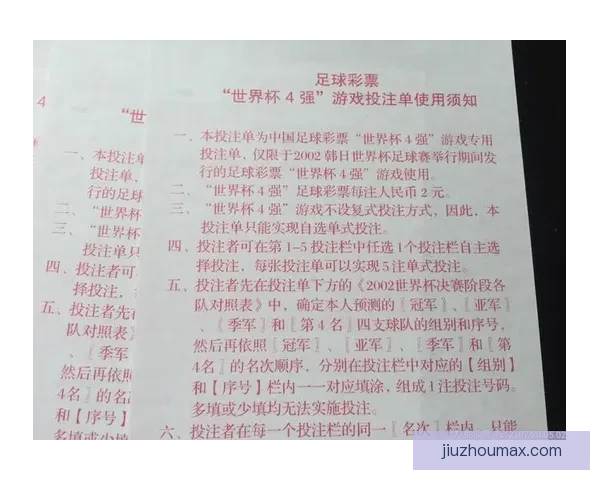 足球彩票
“世界杯 4 强”游戏投注单使用须知
一、本投注单为中国足球彩票“世界杯 4 强”游戏专用
投注单，仅限于2002 韩日世界杯足球赛举行期间发
行的足球彩票“世界杯 4 强”游戏使用。
二、“世界杯 4 强”足球彩票每注人民币 2 元。
三、“世界杯 4 强”游戏不设复式投注方式，因此，本
投注单只能实现自选单式投注。
四、投注者可在第 1-5 投注栏中任选 1个投注栏自主选
择投注，每张投注单可以实现 5 注单式投注。
五、投注者先在投注单下方的《2002世界杯决赛阶段各
队对照表》中，确定本人预测的〖冠军〗、〖亚军〗
、〖季军〗和〖第 4 名〗四支球队的组别和序号，
然后再依照〖冠军〗、〖亚军〗、〖季军〗和〖第
4名〗的名次顺序，分别在投注栏中对应的【组别】
和【序号】栏内一一对应填涂，组成 1注投注号码。
多填或少填均无法实施投注。
六、投注者在每一个投注栏的同一〖名次〗栏内，只能
4
“世
一、本投注单
投注单，
行的足球
二、“世界杯
三、“世界杯
投注单只
四、投注者可
择投注，
五、投注者先在
队对照表》
、〖季军
然后再依照
4名〗的名
和【序号】
多填或少填
jiuzhoumax.com